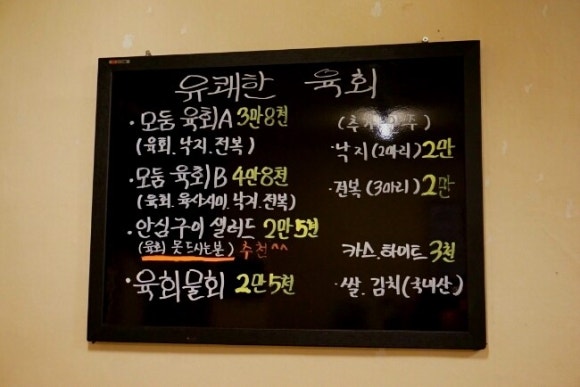 유쾌한 육회
· 모둠 육회A 3만8천
(육회.낙지.전복)
· 모둠 육회B 4만8천
(육회.육사시미.낙지.전복)
· 안심구이 샐러드 2만5천
(육회 못드시는분) 추천^^
· 육회물회 2만5천
· 낙지(2마리) 2만
· 전복(3마리) 2만
카스.하이트 3천
· 쌀.김치(국내산)